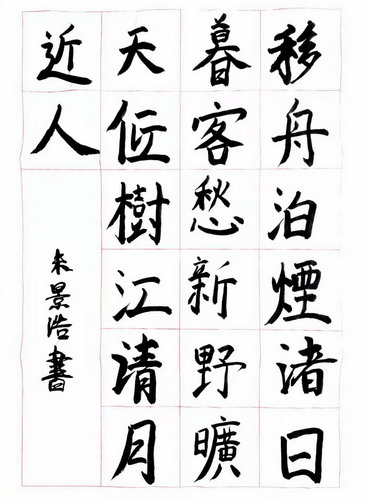 移舟泊煙渚日
暮客愁新野曠
天低樹江请月
近人
朱景浩書